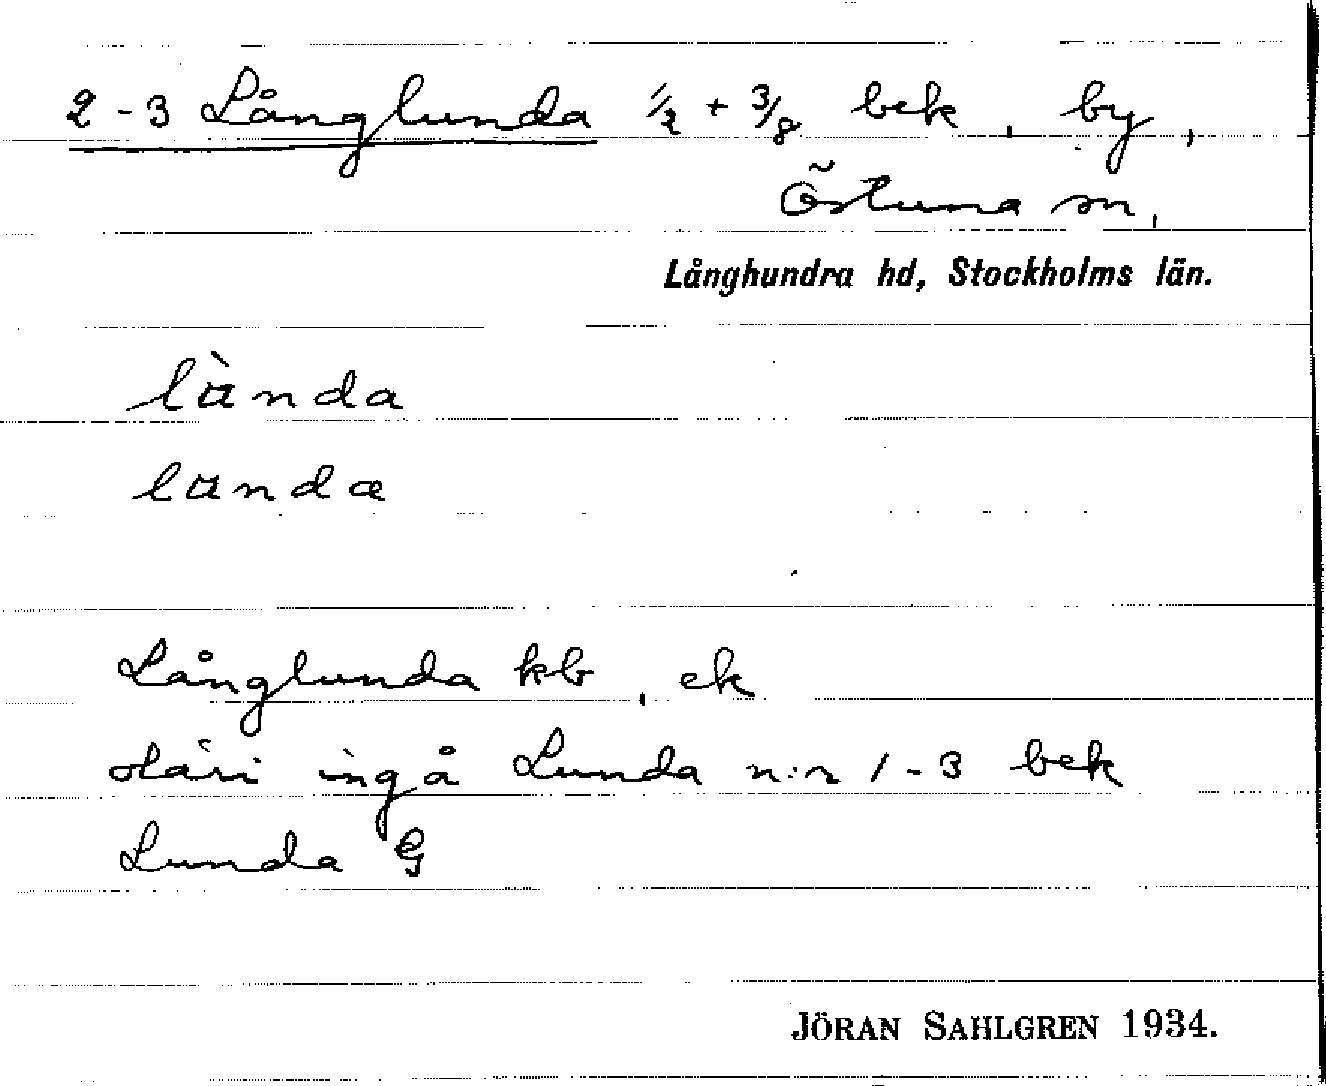 2-3 Långlunda 1/2 + 3/8 bek, by,
Östuna sn,
Långhundra hd, Stockholms län.
lùnda
lunda
Långlunda kb, ek
däri ingå Lunda n:r 1-3 bek
Lunda G
JÖRAN SAHLGREN 1934.